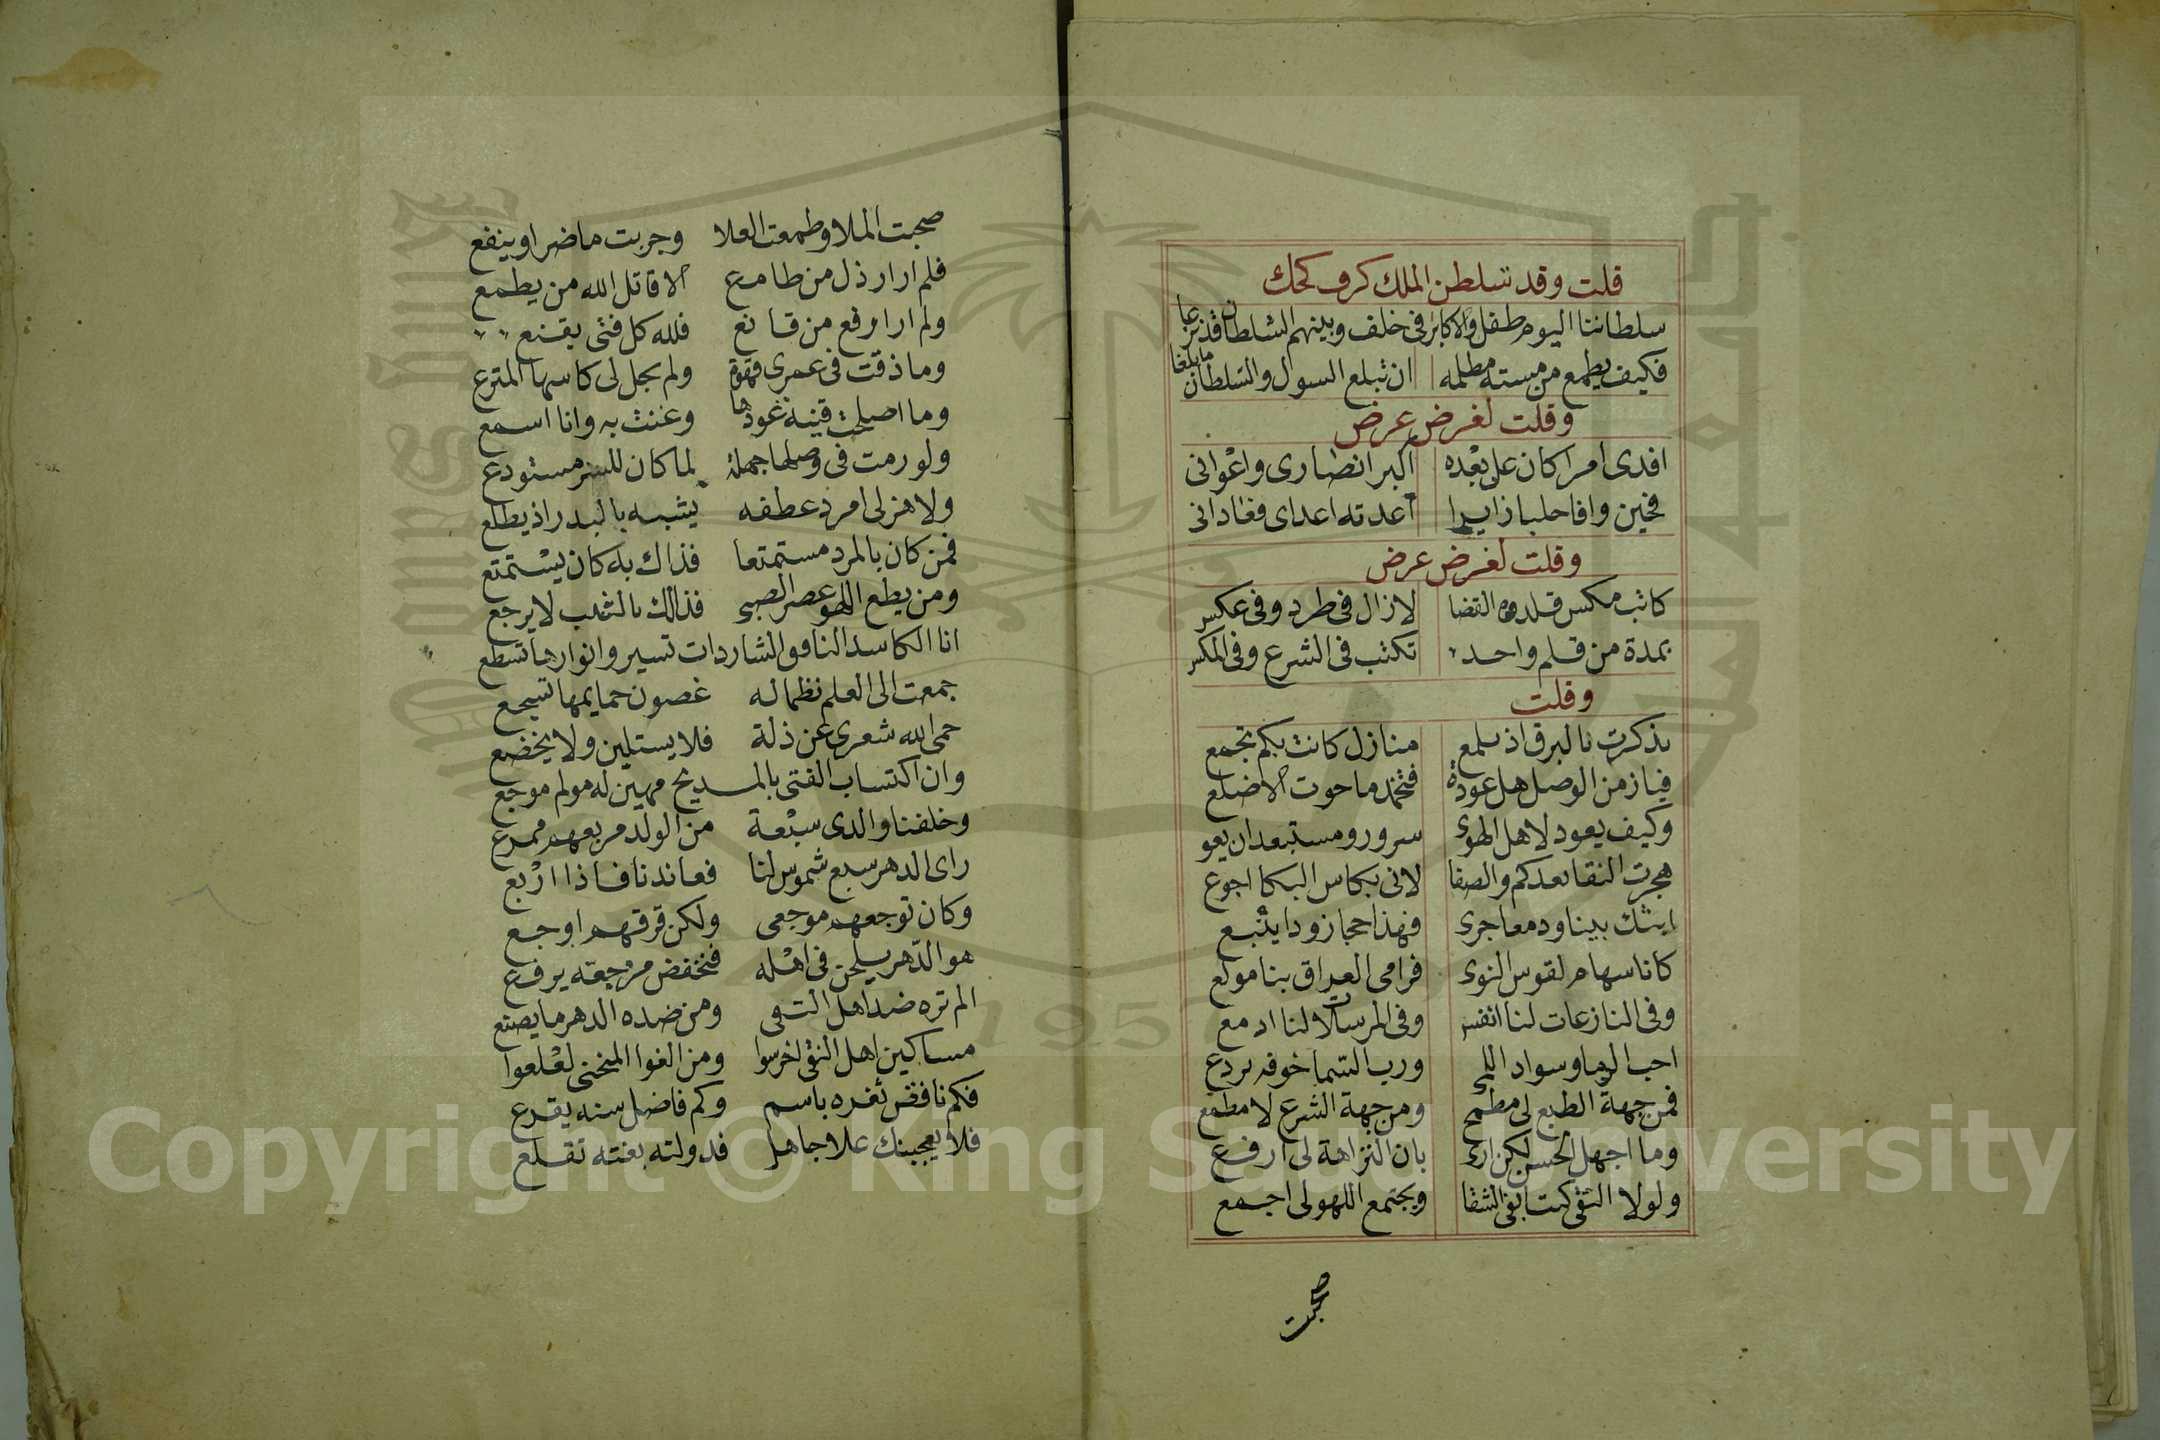 قلت وقد تسلطن الملك كرف كجك
سلطاننا اليوم طفل والاكابر فى خلف وبينهم الشلطان قد نزغا
فكيف يطمع من مسته مظلمه ان تبلع السول والسلطان ما بلغا
وقلت لغرض عرض
افدى امرا كان على بعده اكبر انصارى واعوانى
فحين وافا حلبا زايرا اعدته اعداى فعادانى
وقلت لغرض عرض
كاتب مكس قلدوه القضا لازال فى طرد وفى عكس
بمدة من قلم واحد تكتب فى الشرع وفى المكس
وقلت
تذكرت بالبرق اذ يلمع منازل كانت بكم تجمع
فيا زمن الوصل هل عودة فتخمد ما حوت الاضلع
وكيف يعود لاهل الهوى سرور ومستبعد ان يعو
هجرت النقا بعدكم والصفا لانى بكاس البكا اجوع
ابثك بينا ودمعا جرى فهذا حجاز وذا ينبع
كانا سهام لقوس النوى فرامى العراق بنا مولع
وفى النازعات لنا انفس وفى المرسلات لنا ادمع
احب الدما وسواد اللمى ورب السما خوفه يردع
فمن جهة الطبع لى مطمح ومن جهة الشرع لا مطمع
وما اجهل الحسن لكن ارى بان النزاهة لى ارفع
ولولا التقى كنت ابقى الشفا ويجتمع اللهو لى اجمع
صحبت
صحبت الملا وطمعت العلا وجربت ما ضر او ينفع
فلم ار ارذل من طامع الا قاتل الله من يطمع
ولم ار ارفع من قانع فلله كل فتى يقنع
وما ذقت فى عمرى قهوة ولم يجل لى كاسها المترع
وما اصلحت قينة عودها وغنت به وانا اسمع
ولو رمت فى وصلها جملة لما كان للسر مستودع
ولا هز لى امرد عطفه يشبه بالبدر اذ يطلع
فمن كان بالمرد مستمتعا فذاك به كان يستمتع
ومن يطع اللهو عصر الصبى فذالك بالشيب لا يرجع
انا الكاسد النافق الشاردات تسير وانوارها تسطع
جمعت الى العلم نظما له غصون حمايمها تسجع
حمى الله شعرى عن ذلة فلا يستلين ولا يخضع
وان اكتساب الفتى بالمديح مهين له مولم موجع
وخلفنا والدى سبعة من الولد مربعهم ممرع
راى الدهر سبع شموس لنا فعاندنا فاذا اربع
وكان توجعهم موجعى ولكن فرقتهم اوجع
هو الدهر يلحن فى اهله فتخفض من حقه يرفع
الم تره ضد اهل التقى ومن ضده الدهر ما يصنع
مساكين اهل التقى اخرسوا ومن الغوا المنحنى لعلعوا
فكم نافص ثغره باسم وكم فاضل سنه يقرع
فلا يعجبنك علا جاهل فدولته بغته تقلع
Copyright © King Saud University
1957